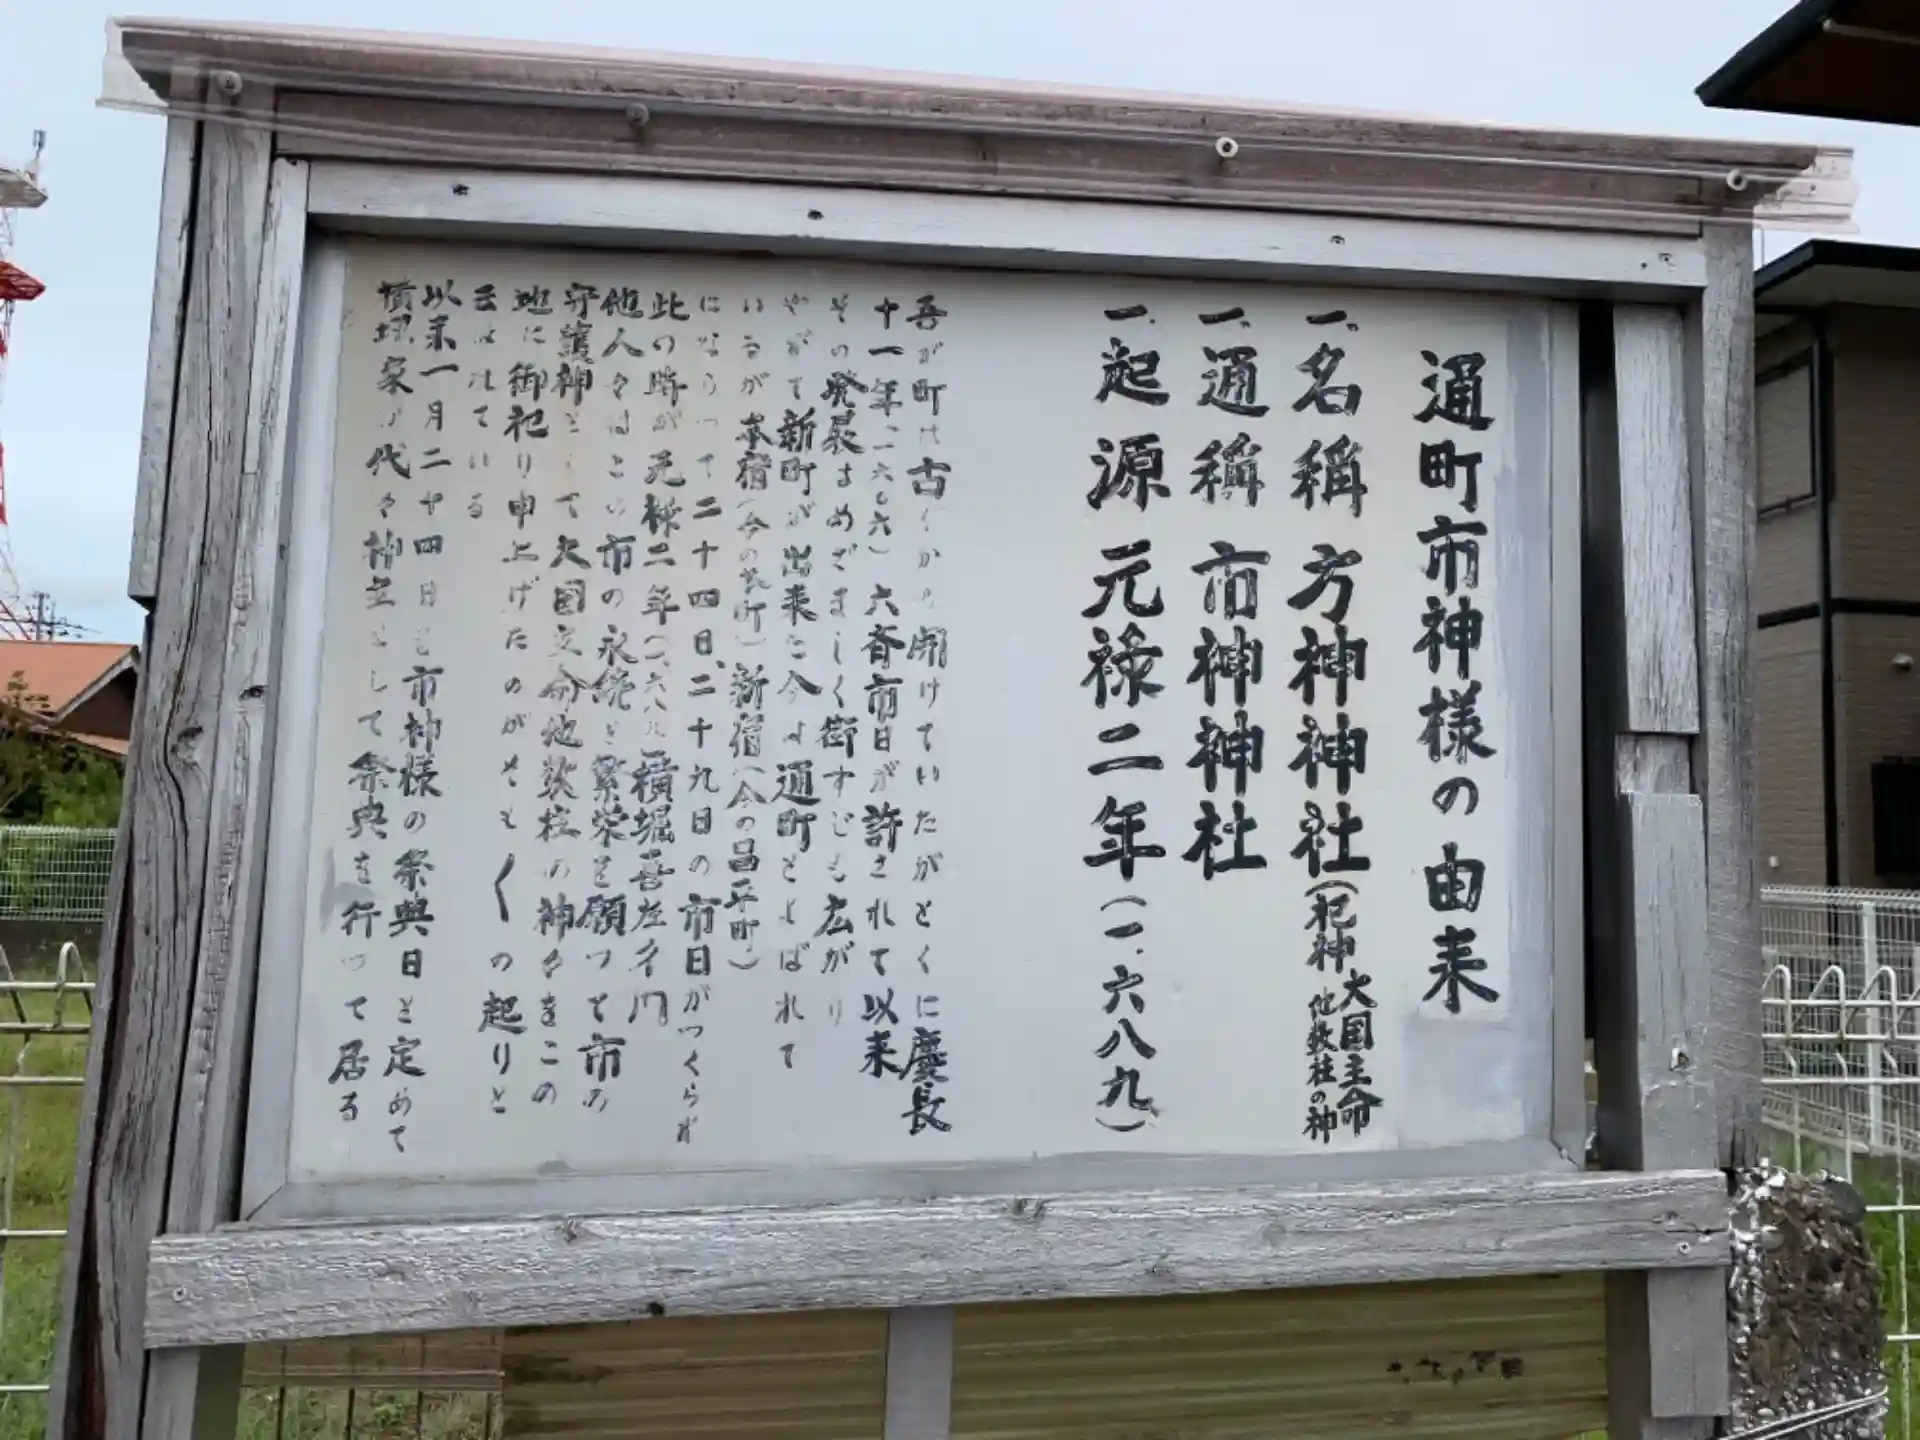 通町市神様の由来
一、名稱 方神神社(祀神 大国主命 他数社の神
一、通稱 市神神社
一、起源 元禄二年(一、六八九)
吾が町は古くから開けていたがとくに慶長
十一年(一六〇六)六斉市日が許されて以来
その発展はめざましく街すじも広がり
やがて新町が出来た今は通町とよばれて
いるが本宿(今の 町)新宿(今の昌平町)
にならって二十四日、二十九日の市日がつくられ
此の時が元禄二年(一、六八九)横堀喜左ヱ門
他人々はこの市の永続と繁栄を願って市の
守護神として大国主命他数柱の神々をこの
地に御祀り申上げたのがそもく の起りと
云はれている
以来一月二十四日を市神様の祭典日と定めて
横堀家が代々神主として祭典を行って居る